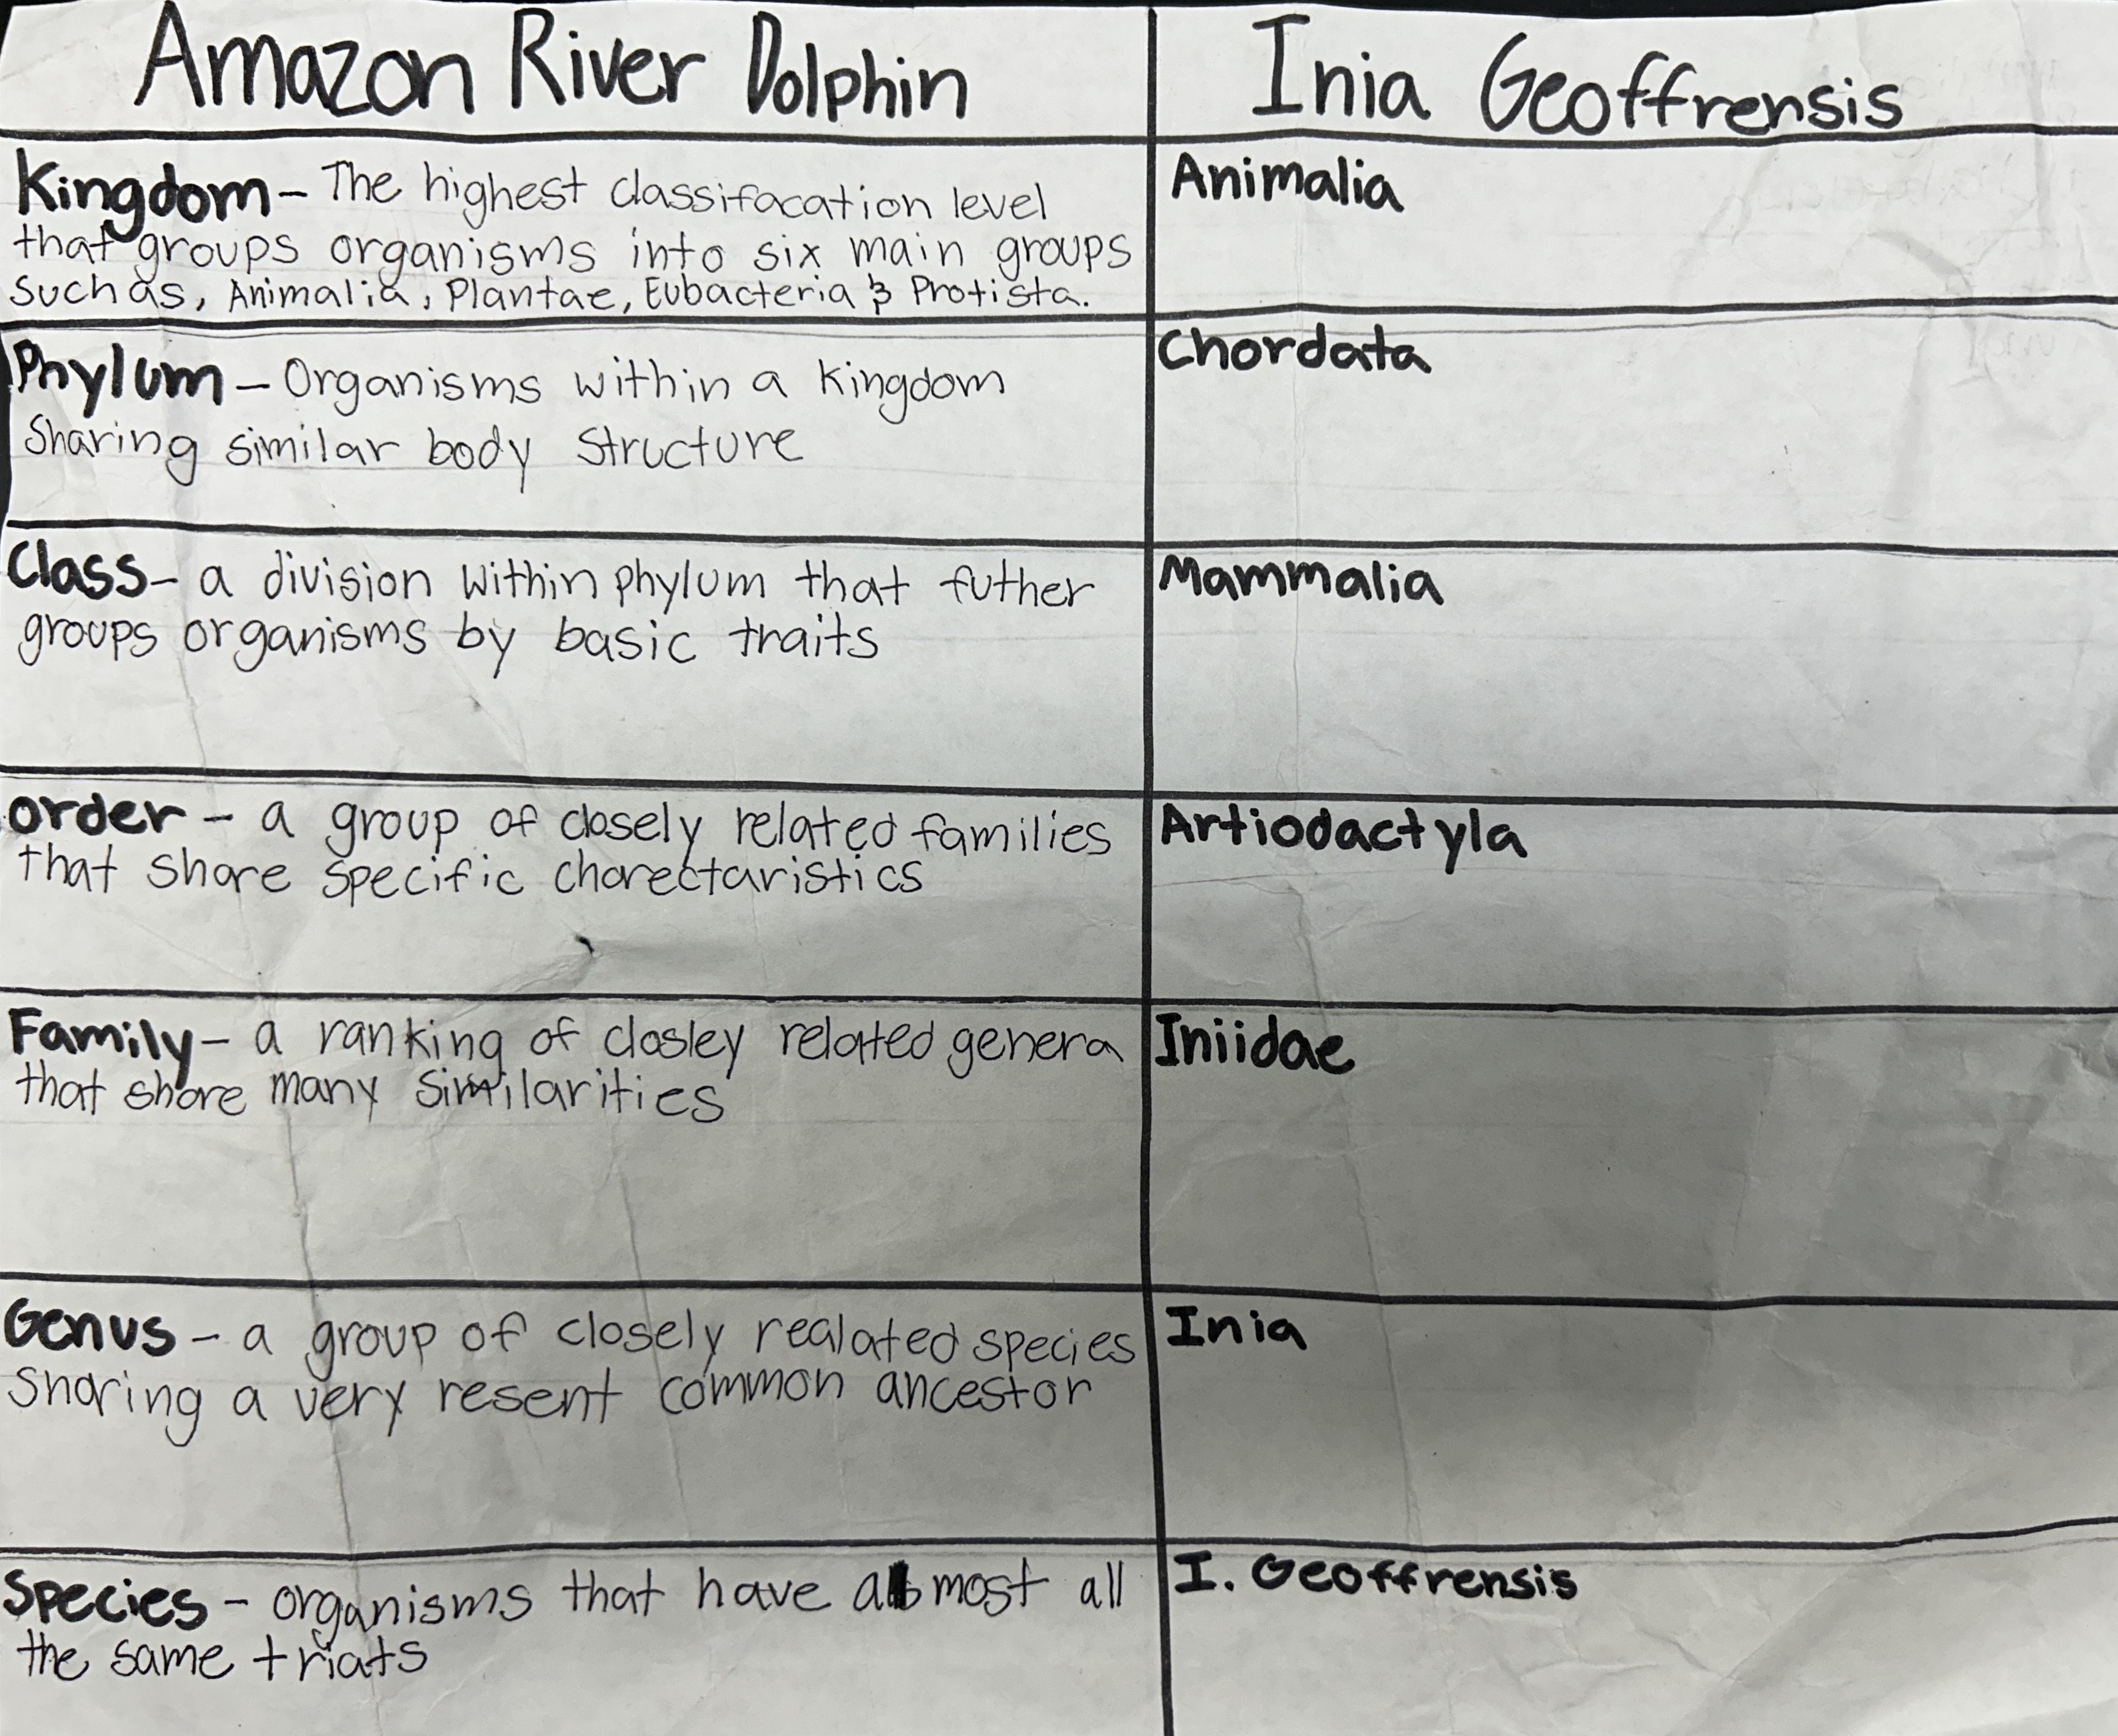 Amazon River Dolphin
Inia Geoffrensis
Kingdom - The highest classifacation level
that groups organisms into six main groups
Such as, Animalia, Plantae, Eubacteria & Protista.
Animalia
Phylum - Organisms within a kingdom
Sharing similar body structure
Chordata
Class - a division within phylum that futher
groups organisms by basic traits
Mammalia
order - a group of closely related families
that share specific charectaristics
Artiodactyla
Family - a ranking of closley related genera
that share many similarities
Iniidae
Genus - a group of closely realated species
Sharing a very resent common ancestor
Inia
Species - organisms that have almost all
the same triats
I. Geoffrensis